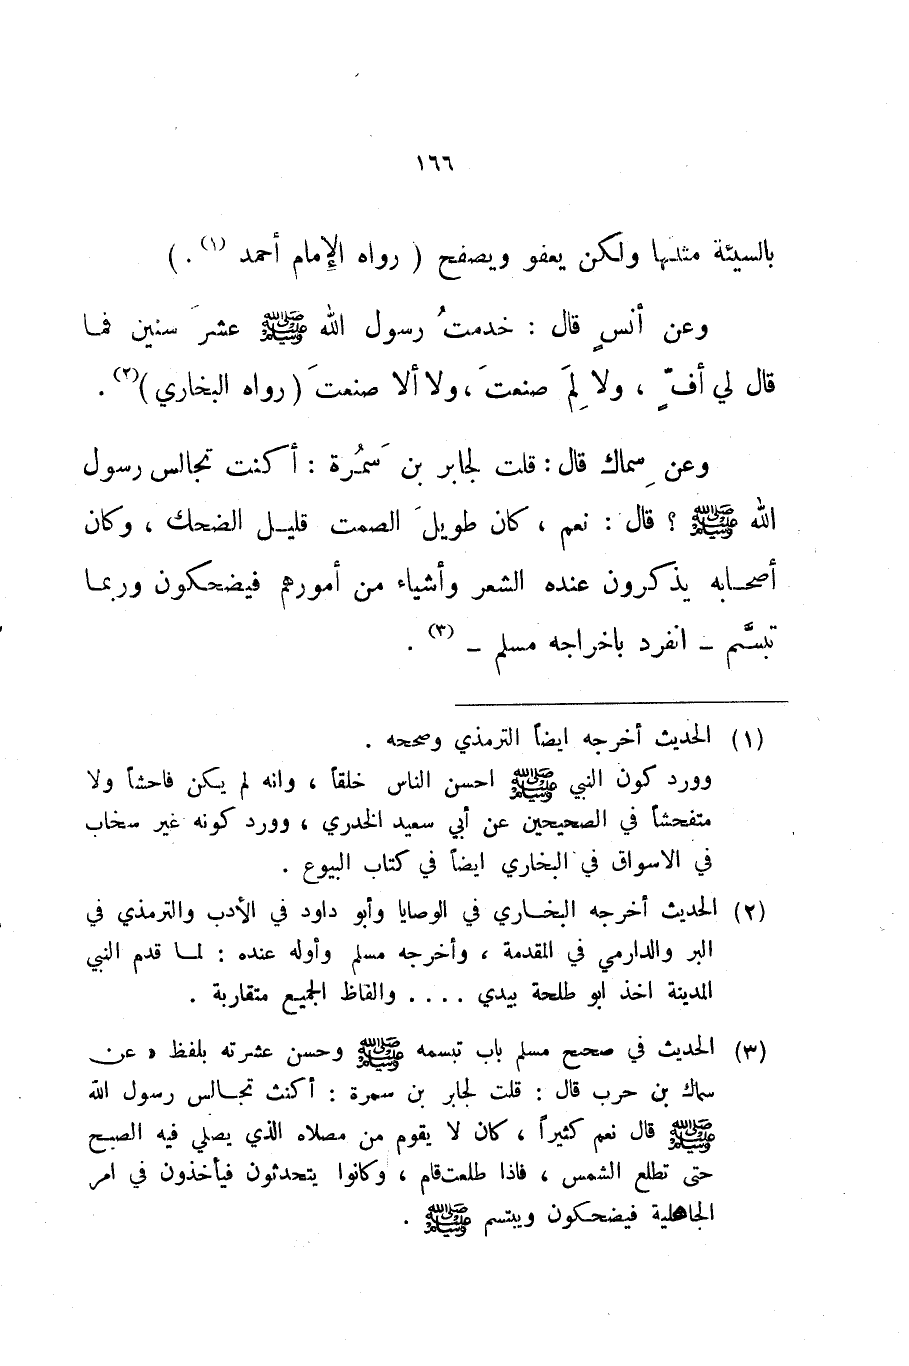 ١٦٦
بالسيئة مثلها ولكن يعفو ويصفح ( رواه الإمام أحمد (١) . )
وعن أنسٍ قال : خدمتُ رسول الله ﷺ عشرَ سنين فما
قال لي أفٍّ ، ولا لِمَ صنعتَ ، ولا ألا صنعتَ ( رواه البخاري )(٢) .
وعن سِماك قال : قلت لجابر بن سَمُرة : أكنت تجالس رسول
الله ﷺ ؟ قال : نعم ، كان طويلَ الصمت قليل الضحك ، وكان
أصحابه يذكرون عنده الشعر وأشياء من أمورهم فيضحكون وربما
تبسَّم – انفرد باخراجه مسلم – (٣) .
(١) الحديث أخرجه ايضاً الترمذي وصححه .
وورد كون النبي ﷺ احسن الناس خلقاً ، وانه لم يكن فاحشاً ولا
متفحشاً في الصحيحين عن أبي سعيد الخدري ، وورد كونه غير سخاب
في الاسواق في البخاري ايضاً في كتاب البيوع .
(٢) الحديث أخرجه البخاري في الوصايا وأبو داود في الأدب والترمذي في
البر والدارمي في المقدمة ، وأخرجه مسلم وأوله عنده : لما قدم النبي
المدينة اخذ ابو طلحة بيدي .... والفاظ الجميع متقاربة .
(٣) الحديث في صحيح مسلم باب تبسمه ﷺ وحسن عشرته بلفظ « عن
سماك بن حرب قال : قلت لجابر بن سمرة : أكنت تجالس رسول الله
ﷺ قال نعم كثيراً ، كان لا يقوم من مصلاه الذي يصلي فيه الصبح
حتى تطلع الشمس ، فاذا طلعت قام ، وكانوا يتحدثون فيأخذون في امر
الجاهلية فيضحكون ويبتسم ﷺ .